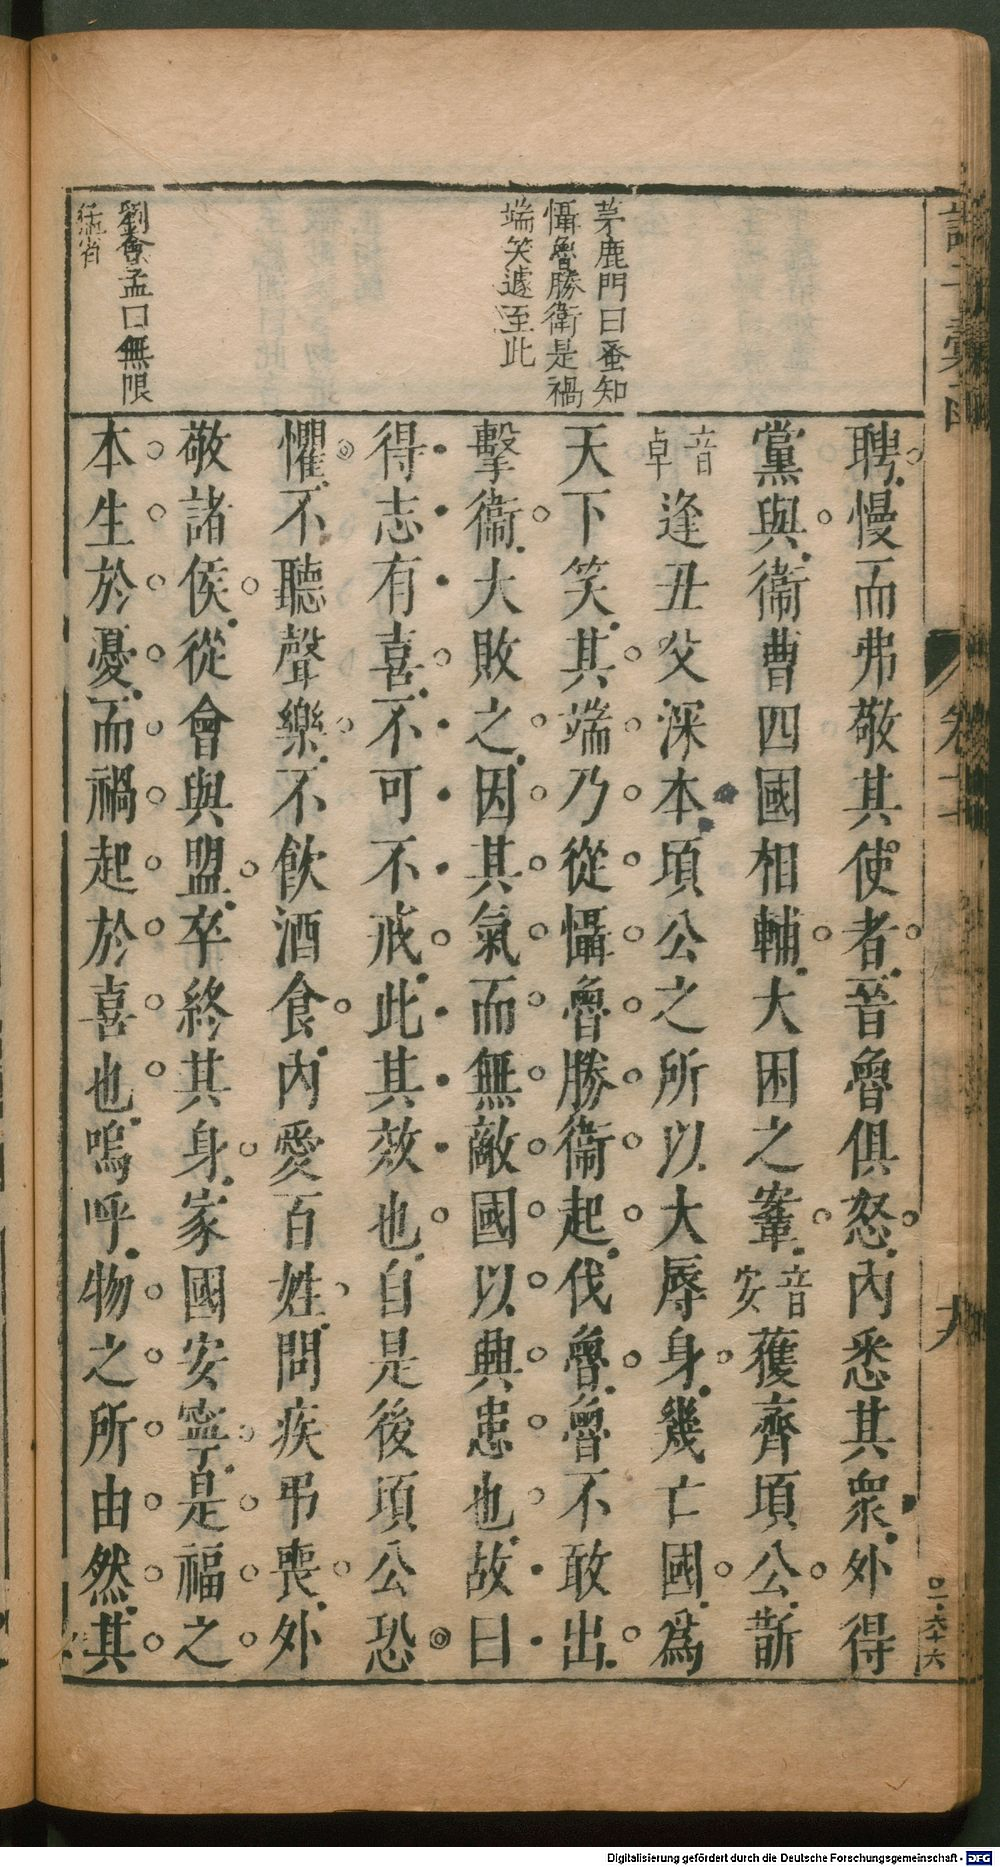 茅鹿門曰蚤知
懾魯勝衛是禍
端笑遽至此
劉會孟曰無限
猛省
聘慢而弗敬其使者晉魯俱怒內悉其衆外得
黨與衛曹四國相輔大困之鞌音安獲齊頃公斮
音卓逢丑父深本頃公之所以大辱身幾亡國爲
天下笑其端乃從懾魯勝衛起伐魯魯不敢出
擊衛大敗之因其氣而無敵國以興患也故曰
得志有喜不可不戒此其效也自是後頃公恐
懼不聽聲樂不飲酒食內愛百姓問疾弔喪外
敬諸侯從會與盟卒終其身家國安寧是福之
本生於憂而禍起於喜也嗚呼物之所由然其
九
六十六
Digitalisierung gefördert durch die Deutsche Forschungsgemeinschaft - DFG